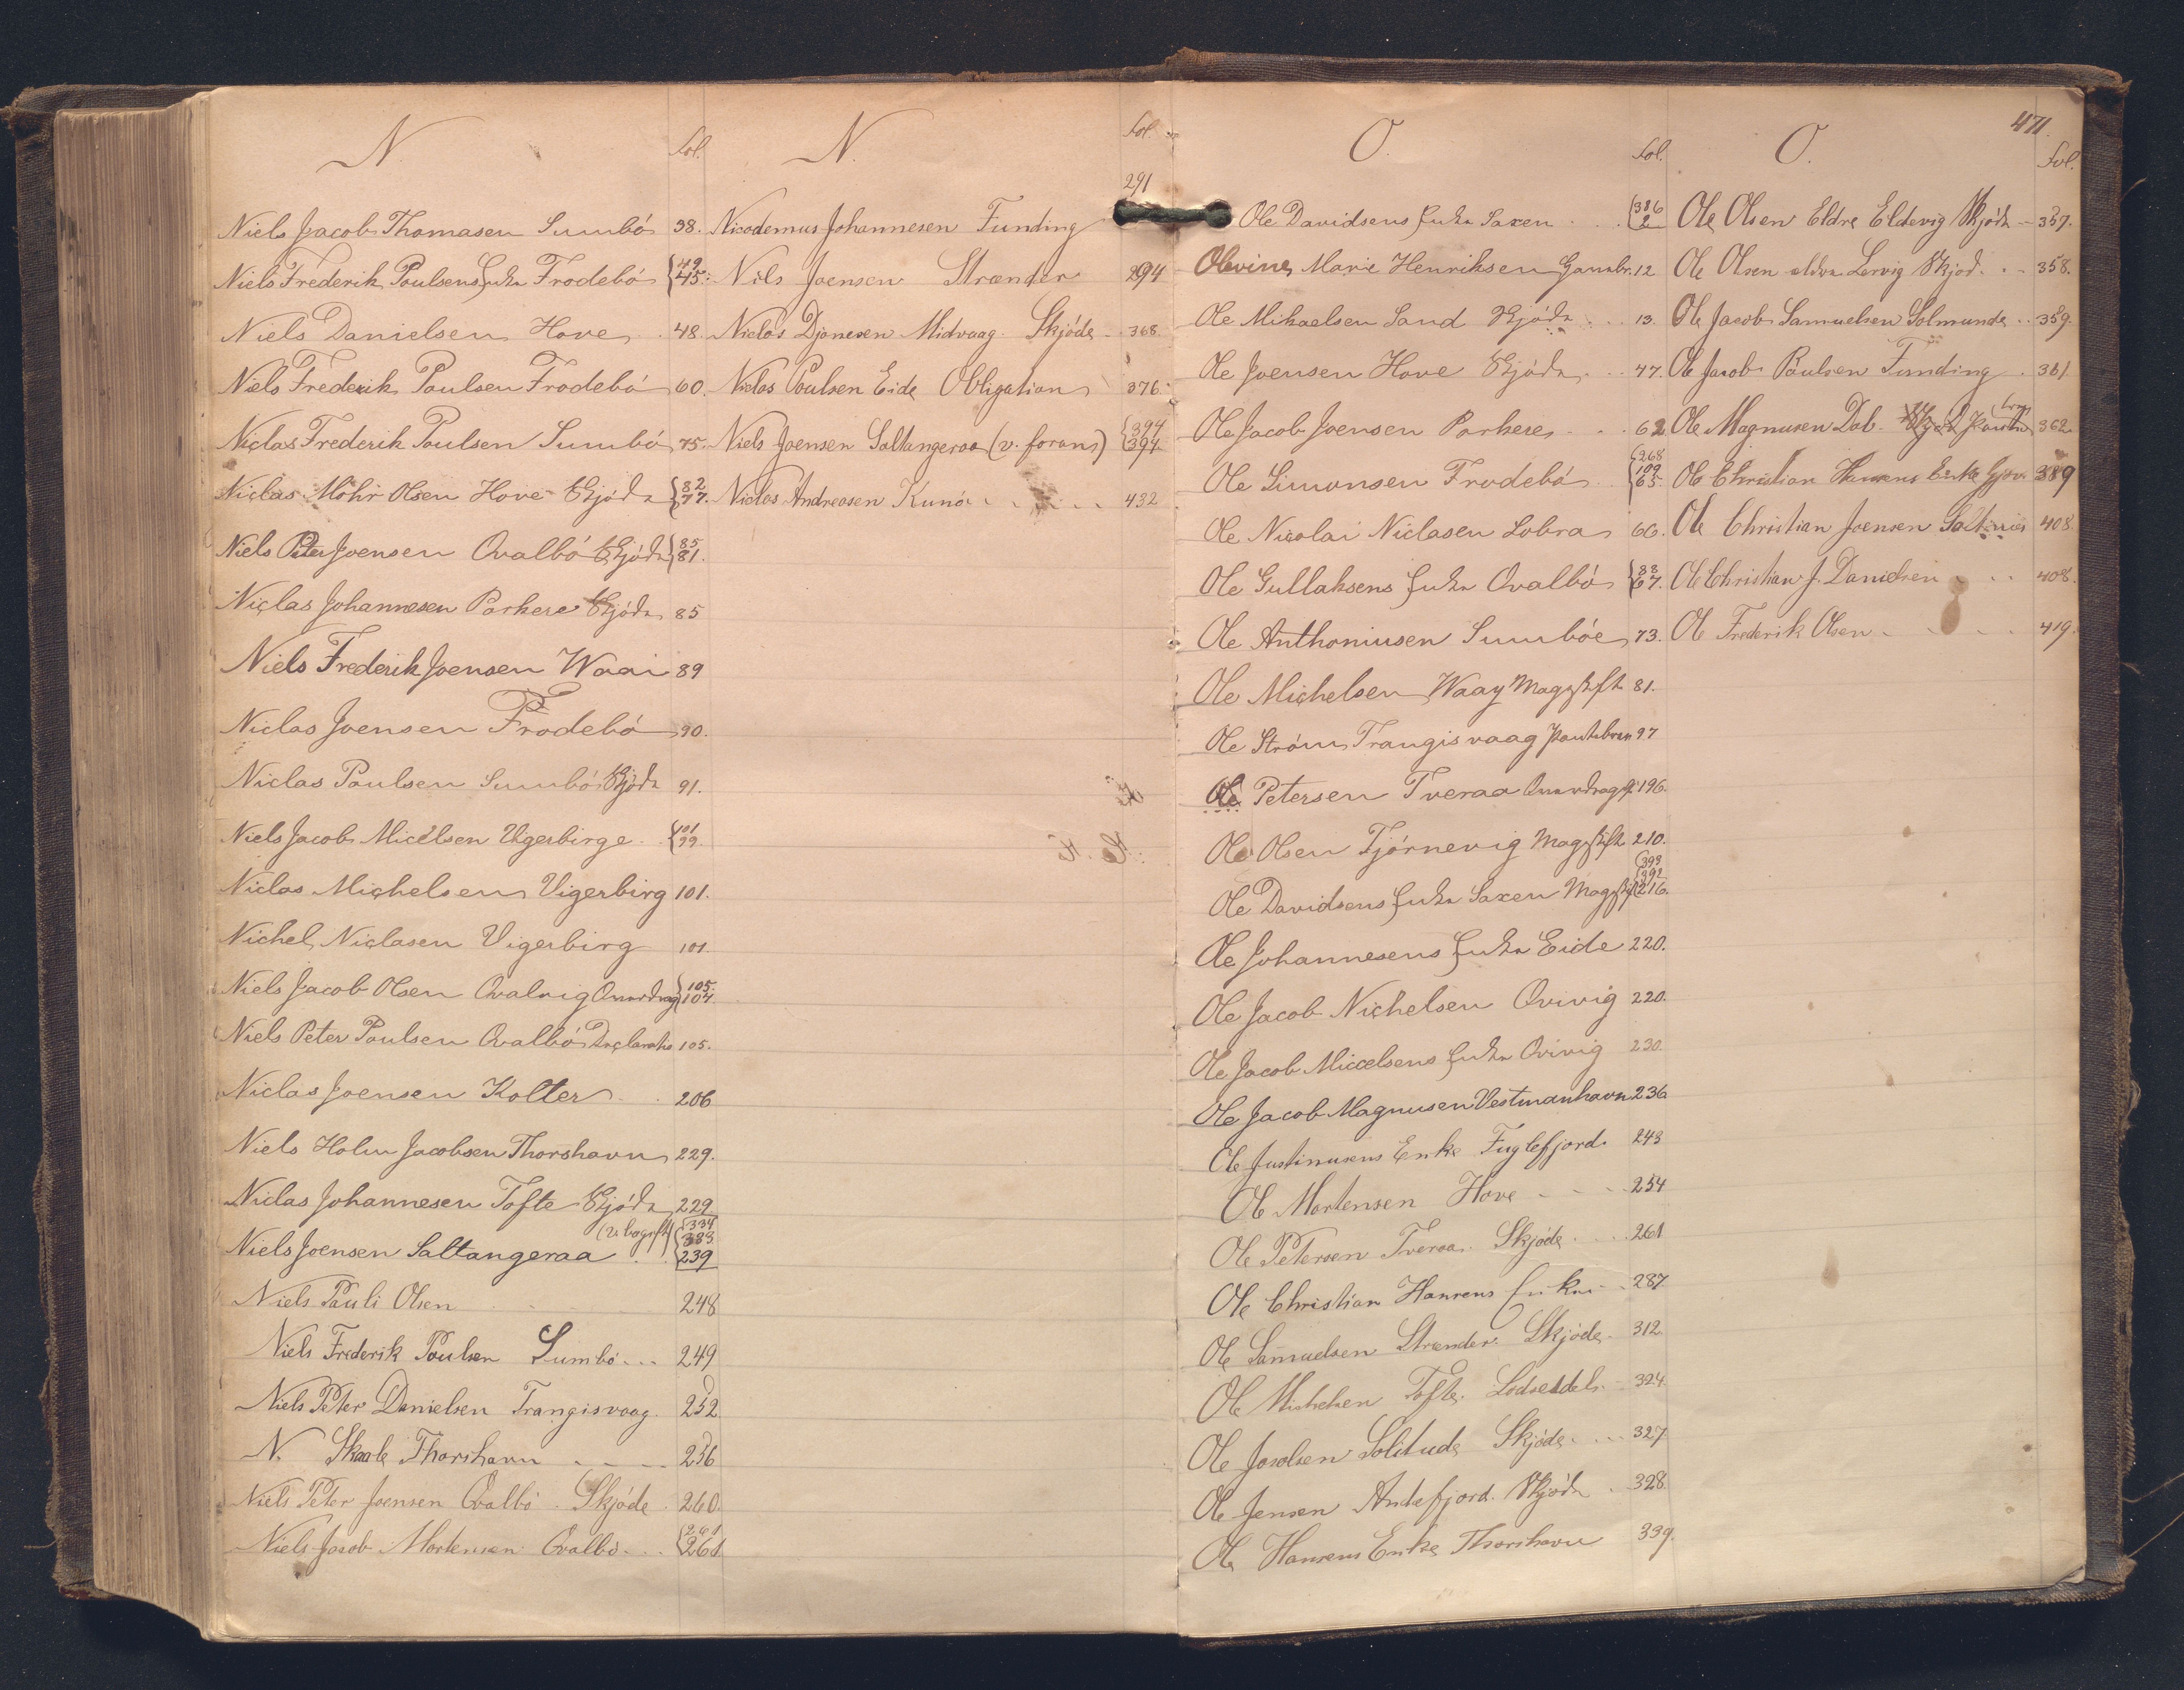 N.
Fol.
Niels Jacob Thomasen Sumbó 38.
Niels Frederik Poulsens Enke Frodebó 49 45.
Niels Danielsen Hove 48.
Niels Frederik Poulsen Frodebó 60.
Niclas Frederik Poulsen Sumbó 75.
Niclas Mohr Olsen Hove Skjóde 82 77.
Niels Peter Joensen Qvalbó Skjóde 85 81.
Niclas Johannesen Porkere Skjóde 85
Niels Frederik Joensen Waai 89
Niclas Joensen Frodebó 90.
Niclas Poulsen Sumbó Skjóde 91.
Niels Jacob Micelsen Vigerbirge 101 99.
Niclas Michelsen Vigerbirg 101.
Nichel Niclasen Vigerbirg 101.
Niels Jacob Olsen Qvalvig 105. 104.
Niels Peter Poulsen Qvalbó 105.
Niclas Joensen Kolter 206
Niels Holm Jacobsen Thorshavn 229.
Niclas Johannesen Tofte Skjóde 229
Niels Joensen Saltangeraa 334 388 239
Niels Pauli Olsen 248
Niels Frederik Poulsen Sumbó 249
Niels Peter Danielsen Trangisvaag 252
N. Skaale Thorshavn 256
Niels Peter Joensen Qvalbó Skjóde 260.
Niels Jacob Mortensen Qvalbó 261 261
N.
Fol.
Nicodemus Johannesen Funding 291
Nils Joensen Strænder 294
Niclas Djonesen Midvaag Skjóde 368.
Niclas Poulsen Eide Obligation 376.
Niels Joensen Saltangeraa (v. forans) 394 394
Niclas Andreasen Kunó 432
O.
Fol.
Ole Davidsens Enke Saxen 386 2
Olevine Marie Henriksen 12
Ole Mikaelsen Sand Skjóde 13.
Ole Joensen Hove Skjóde 47.
Ole Jacob Joensen Porkere 62
Ole Simonsen Frodebó 268 109 65.
Ole Nicolai Niclasen Lobra 66.
Ole Gullaksens Enke Qvalbó 88 67.
Ole Anthoniusen Sumbóe 73.
Ole Michelsen Waay Mageskift 81.
Ole Stróm Trangisvaag Pantebrev 97
Ole Petersen Tveraa 196.
Ole Olsen Tjórnevig Mageskift 210.
Ole Davidsens Enke Saxen Mageskift 393 392 216.
Ole Johannesens Enke Eide 220.
Ole Jacob Nichelsen Qvivig 220.
Ole Jacob Miccelsens Enke Qvivig 230.
Ole Jacob Magnusen Vestmanhavn 236
Ole Justinusens Enke Fuglefjord 243
Ole Mortensen Hove 254
Ole Petersen Tveraa Skjóde 261
Ole Christian Hansens Enke 287
Ole Samuelsen Strænder Skjóde 312
Ole Michelsen Tofte Lodseddel 324.
Ole Solitude Skjóde 327
Ole Jensen Andefjord Skjóde 328.
Ole Hansens Enke Thorshavn 339.
O.
471.
Fol.
Ole Olsen Eldre Eldevig Skjóde 357.
Ole Olsen eldre Lervig Skjód. 358.
Ole Jacob Samuelsen Solmunde 359.
Ole Jacob Poulsen Funding 361
Ole Magnusen Dal 362
Ole Christian Hansens Enke Gjov 389
Ole Christian Joensen Saltnæs 408
Ole Christian J. Danielsen 408.
Ole Frederik Olsen 419.